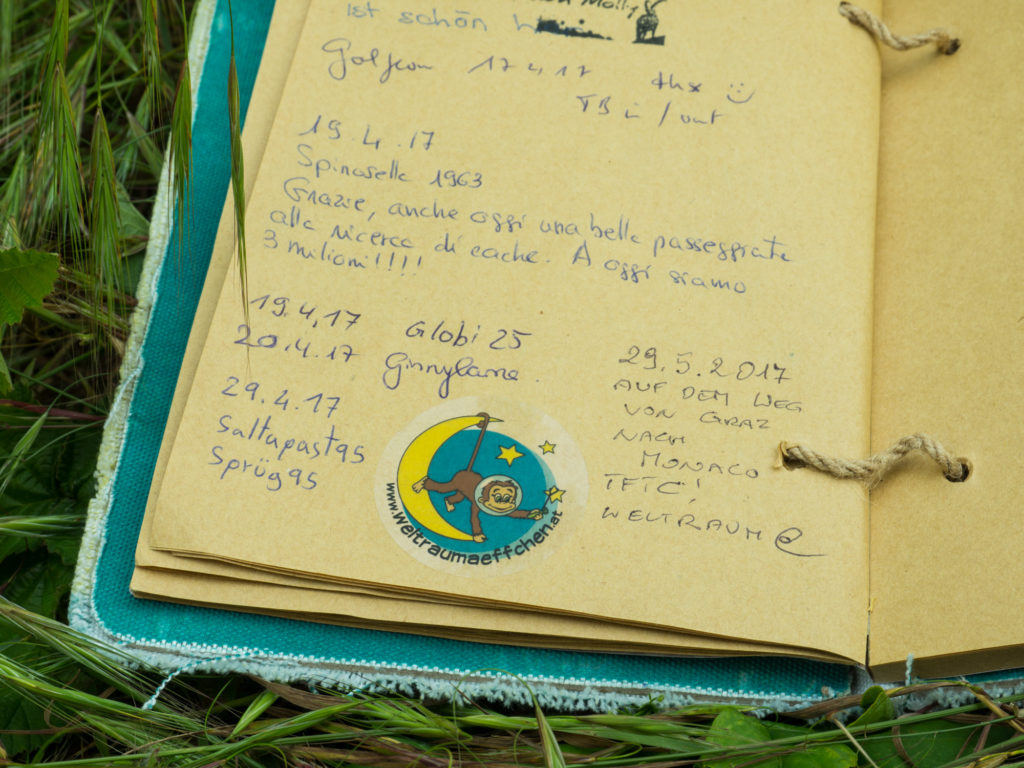 Molly
ist schön
17.4.17 thx :)
TB in / out
19.4.17
1963
Grazie, anche oggi una bella passeggiata
alla ricerca di cache. A oggi siamo
3 milioni!!!!
19.4.17 Globi 25
20.4.17
29.4.17
Saltapasta95
Sprüg95
www.weltraumaeffchen.at
29.5.2017
AUF DEM WEG
VON GRAZ
NACH
MONACO
TFTC!
WELTRAUM@